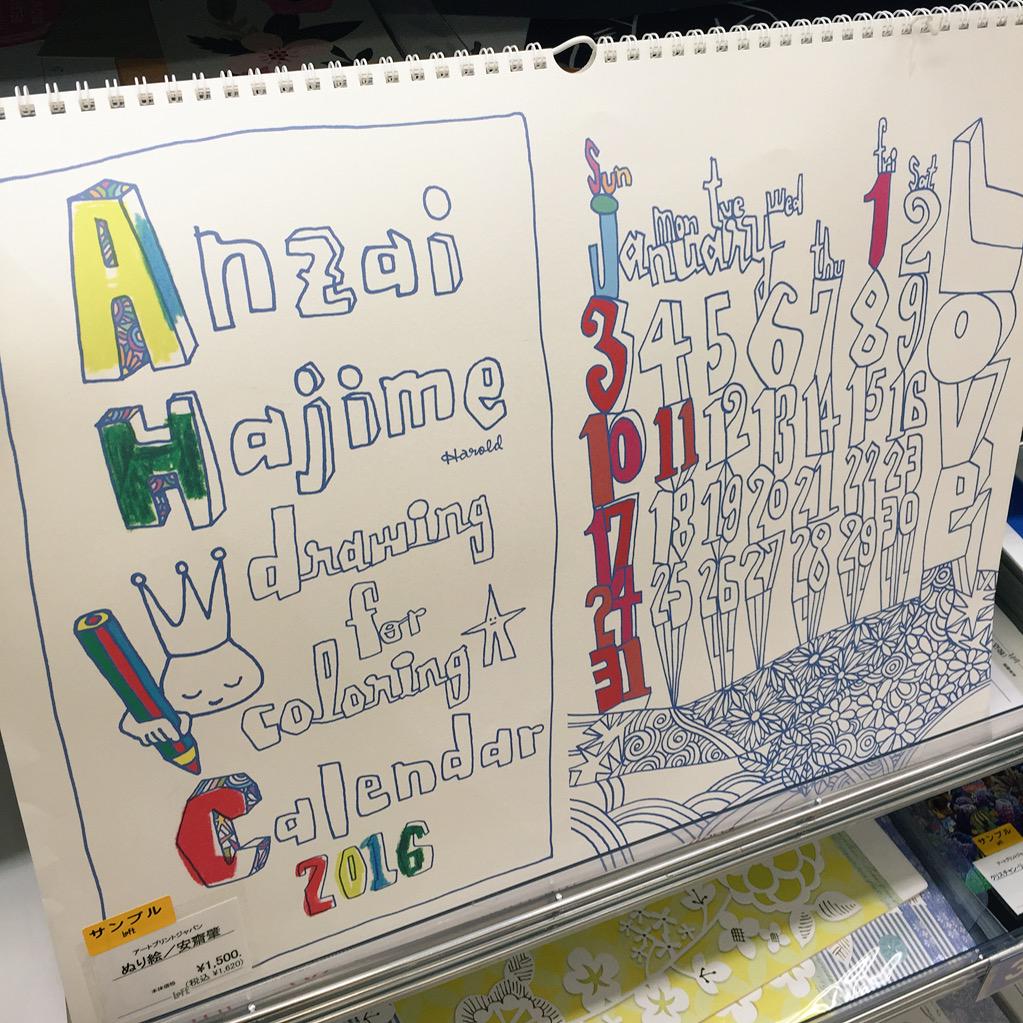 Anzai
Hajime
Harold
drawing
for
coloring
Calendar
2016
サンプル
loft
アートプリントジャパン
ぬり絵／安齋肇
¥1,500.
本体価格
(税込 ¥1,620)
Loft
Sun mon tue wed thu fri sat
January
1 2
3 4 5 6 7 8 9
10 11 12 13 14 15 16
17 18 19 20 21 22 23
24 25 26 27 28 29 30
31
Love
サンプル